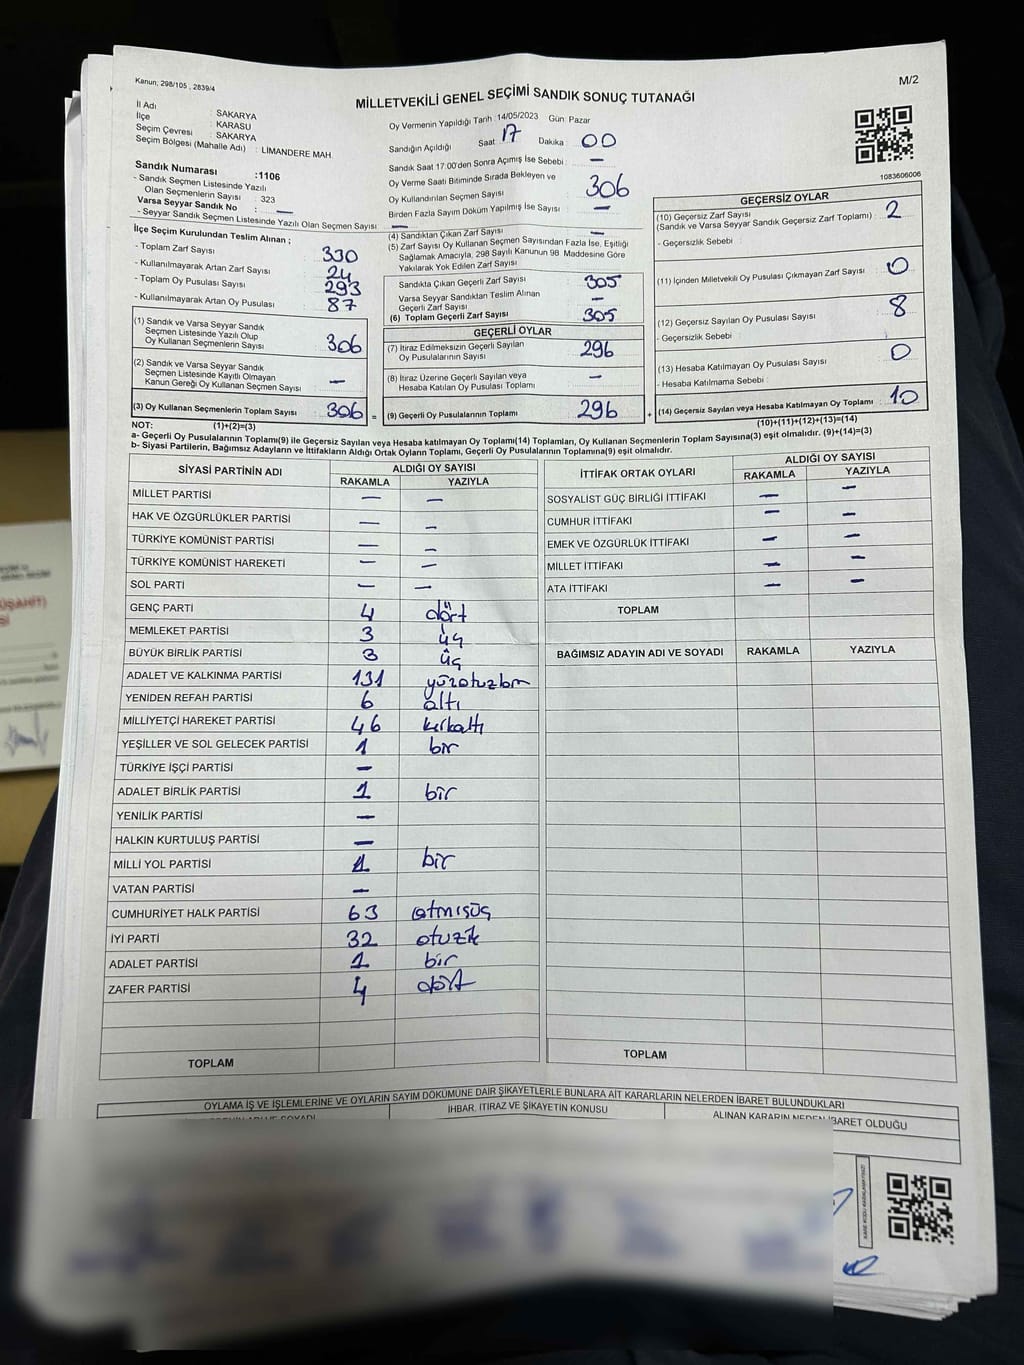 Kanun, 298/105 , 2839/4
M/2
MİLLETVEKİLİ GENEL SEÇİMİ SANDIK SONUÇ TUTANAĞI
İl Adı : SAKARYA
İlçe : KARASU
Seçim Çevresi : SAKARYA
Seçim Bölgesi (Mahalle Adı) : LİMANDERE MAH.
Sandık Numarası :1106
- Sandık Seçmen Listesinde Yazılı
Olan Seçmenlerin Sayısı : 323
Varsa Seyyar Sandık No : —
- Seyyar Sandık Seçmen Listesinde Yazılı Olan Seçmen Sayısı : —
İlçe Seçim Kurulundan Teslim Alınan ;
- Toplam Zarf Sayısı : 330
- Kullanılmayarak Artan Zarf Sayısı : 24
- Toplam Oy Pusulası Sayısı : 293
- Kullanılmayarak Artan Oy Pusulası : 87
(1) Sandık ve Varsa Seyyar Sandık
Seçmen Listesinde Yazılı Olup
Oy Kullanan Seçmenlerin Sayısı : 306
(2) Sandık ve Varsa Seyyar Sandık
Seçmen Listesinde Kayıtlı Olmayan
Kanun Gereği Oy Kullanan Seçmen Sayısı : —
(3) Oy Kullanan Seçmenlerin Toplam Sayısı : 306 =
Oy Vermenin Yapıldığı Tarih : 14/05/2023 Gün: Pazar
Sandığın Açıldığı Saat : 17 Dakika : 00
Sandık Saat 17:00'den Sonra Açımış İse Sebebi : —
Oy Verme Saati Bitiminde Sırada Bekleyen ve
Oy Kullandırılan Seçmen Sayısı : 306
Birden Fazla Sayım Döküm Yapılmış İse Sayısı : —
(4) Sandıktan Çıkan Zarf Sayısı : —
(5) Zarf Sayısı Oy Kullanan Seçmen Sayısından Fazla İse, Eşitliği
Sağlamak Amacıyla, 298 Sayılı Kanunun 98 Maddesine Göre
Yakılarak Yok Edilen Zarf Sayısı
Sandıkta Çıkan Geçerli Zarf Sayısı : 305
Varsa Seyyar Sandıktan Teslim Alınan
Geçerli Zarf Sayısı : —
(6) Toplam Geçerli Zarf Sayısı : 305
GEÇERLİ OYLAR
(7) İtiraz Edilmeksizin Geçerli Sayılan
Oy Pusulalarının Sayısı : 296
(8) İtiraz Üzerine Geçerli Sayılan veya
Hesaba Katılan Oy Pusulası Toplamı : —
(9) Geçerli Oy Pusulalarının Toplamı : 296 +
1083606006
GEÇERSİZ OYLAR
(10) Geçersiz Zarf Sayısı : 2
(Sandık ve Varsa Seyyar Sandık Geçersiz Zarf Toplamı)
- Geçersizlik Sebebi :
(11) İçinden Milletvekili Oy Pusulası Çıkmayan Zarf Sayısı : 0
(12) Geçersiz Sayılan Oy Pusulası Sayısı : 8
- Geçersizlik Sebebi :
(13) Hesaba Katılmayan Oy Pusulası Sayısı : 0
- Hesaba Katılmama Sebebi :
(14) Geçersiz Sayılan veya Hesaba Katılmayan Oy Toplamı : 10
(10)+(11)+(12)+(13)=(14)
NOT: (1)+(2)=(3)
a- Geçerli Oy Pusulalarının Toplamı(9) ile Geçersiz Sayılan veya Hesaba katılmayan Oy Toplamı(14) Toplamları, Oy Kullanan Seçmenlerin Toplam Sayısına(3) eşit olmalıdır. (9)+(14)=(3)
b- Siyasi Partilerin, Bağımsız Adayların ve İttifakların Aldığı Ortak Oyların Toplamı, Geçerli Oy Pusulalarının Toplamına(9) eşit olmalıdır.
SİYASİ PARTİNİN ADI ALDIĞI OY SAYISI
RAKAMLA YAZIYLA
MİLLET PARTİSİ — —
HAK VE ÖZGÜRLÜKLER PARTİSİ — —
TÜRKİYE KOMÜNİST PARTİSİ — —
TÜRKİYE KOMÜNİST HAREKETİ — —
SOL PARTİ — —
GENÇ PARTİ 4 dört
MEMLEKET PARTİSİ 3 üç
BÜYÜK BİRLİK PARTİSİ 3 üç
ADALET VE KALKINMA PARTİSİ 131 yüzotuzbir
YENİDEN REFAH PARTİSİ 6 altı
MİLLİYETÇİ HAREKET PARTİSİ 46 kırkaltı
YEŞİLLER VE SOL GELECEK PARTİSİ 1 bir
TÜRKİYE İŞÇİ PARTİSİ —
ADALET BİRLİK PARTİSİ 1 bir
YENİLİK PARTİSİ —
HALKIN KURTULUŞ PARTİSİ —
MİLLİ YOL PARTİSİ 1 bir
VATAN PARTİSİ —
CUMHURİYET HALK PARTİSİ 63 atmışüç
İYİ PARTİ 32 otuzik
ADALET PARTİSİ 1 bir
ZAFER PARTİSİ 4 dört
TOPLAM
İTTİFAK ORTAK OYLARI ALDIĞI OY SAYISI
RAKAMLA YAZIYLA
SOSYALİST GÜÇ BİRLİĞİ İTTİFAKI — —
CUMHUR İTTİFAKI — —
EMEK VE ÖZGÜRLÜK İTTİFAKI — —
MİLLET İTTİFAKI — —
ATA İTTİFAKI — —
TOPLAM
BAĞIMSIZ ADAYIN ADI VE SOYADI RAKAMLA YAZIYLA
TOPLAM
OYLAMA İŞ VE İŞLEMLERİNE VE OYLARIN SAYIM DÖKÜMÜNE DAİR ŞİKAYETLERLE BUNLARA AİT KARARLARIN NELERDEN İBARET BULUNDUKLARI
İHBAR, İTİRAZ VE ŞİKAYETİN KONUSU
ALINAN KARARIN NEDEN İBARET OLDUĞU